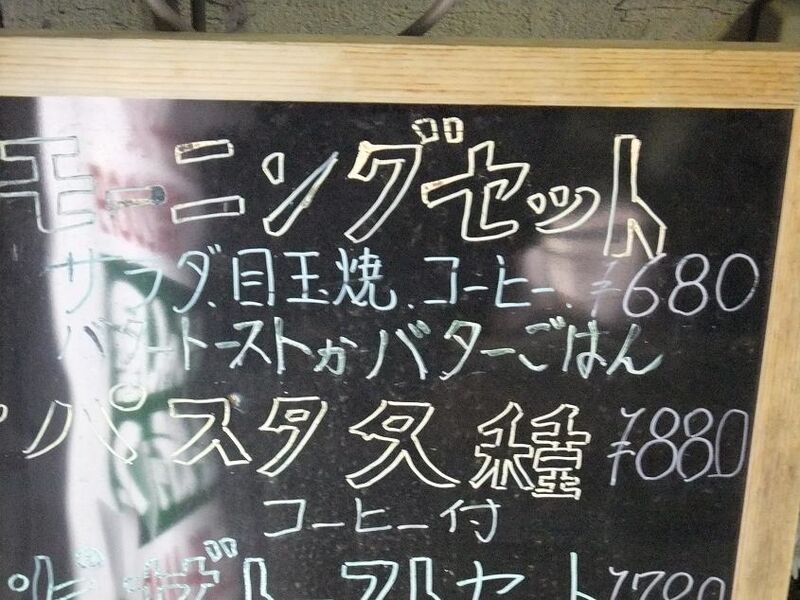 モーニングセット
サラダ、目玉焼、コーヒー、¥680
バタートーストかバターごはん
パスタ各種 ¥880
コーヒー付
ピザトーストセット ¥780